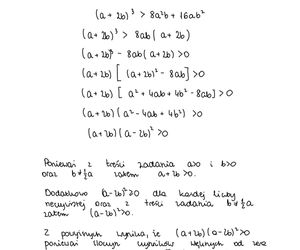 (a+2b)³ > 8a²b + 16ab²
(a+2b)³ > 8ab (a+2b)
(a+2b)³ - 8ab(a+2b) >0
(a+2b) [ (a+2b)² - 8ab] >0
(a+2b) [ a² + 4ab + 4b² - 8ab] >0
(a+2b)(a² - 4ab + 4b²) >0
(a+2b)(a-2b)² >0
Ponieważ z treści zadania a>0 i b>0
oraz b≠½a zatem a+2b >0.
Dodatkowo (a-2b)²>0 dla każdej liczby
rzeczywistej oraz z treści zadania b≠½a
zatem (a-2b)²>0.
Z powyższych wynika, że (a+2b)(a-2b)²>0
ponieważ iloczyn wyników większych od zera